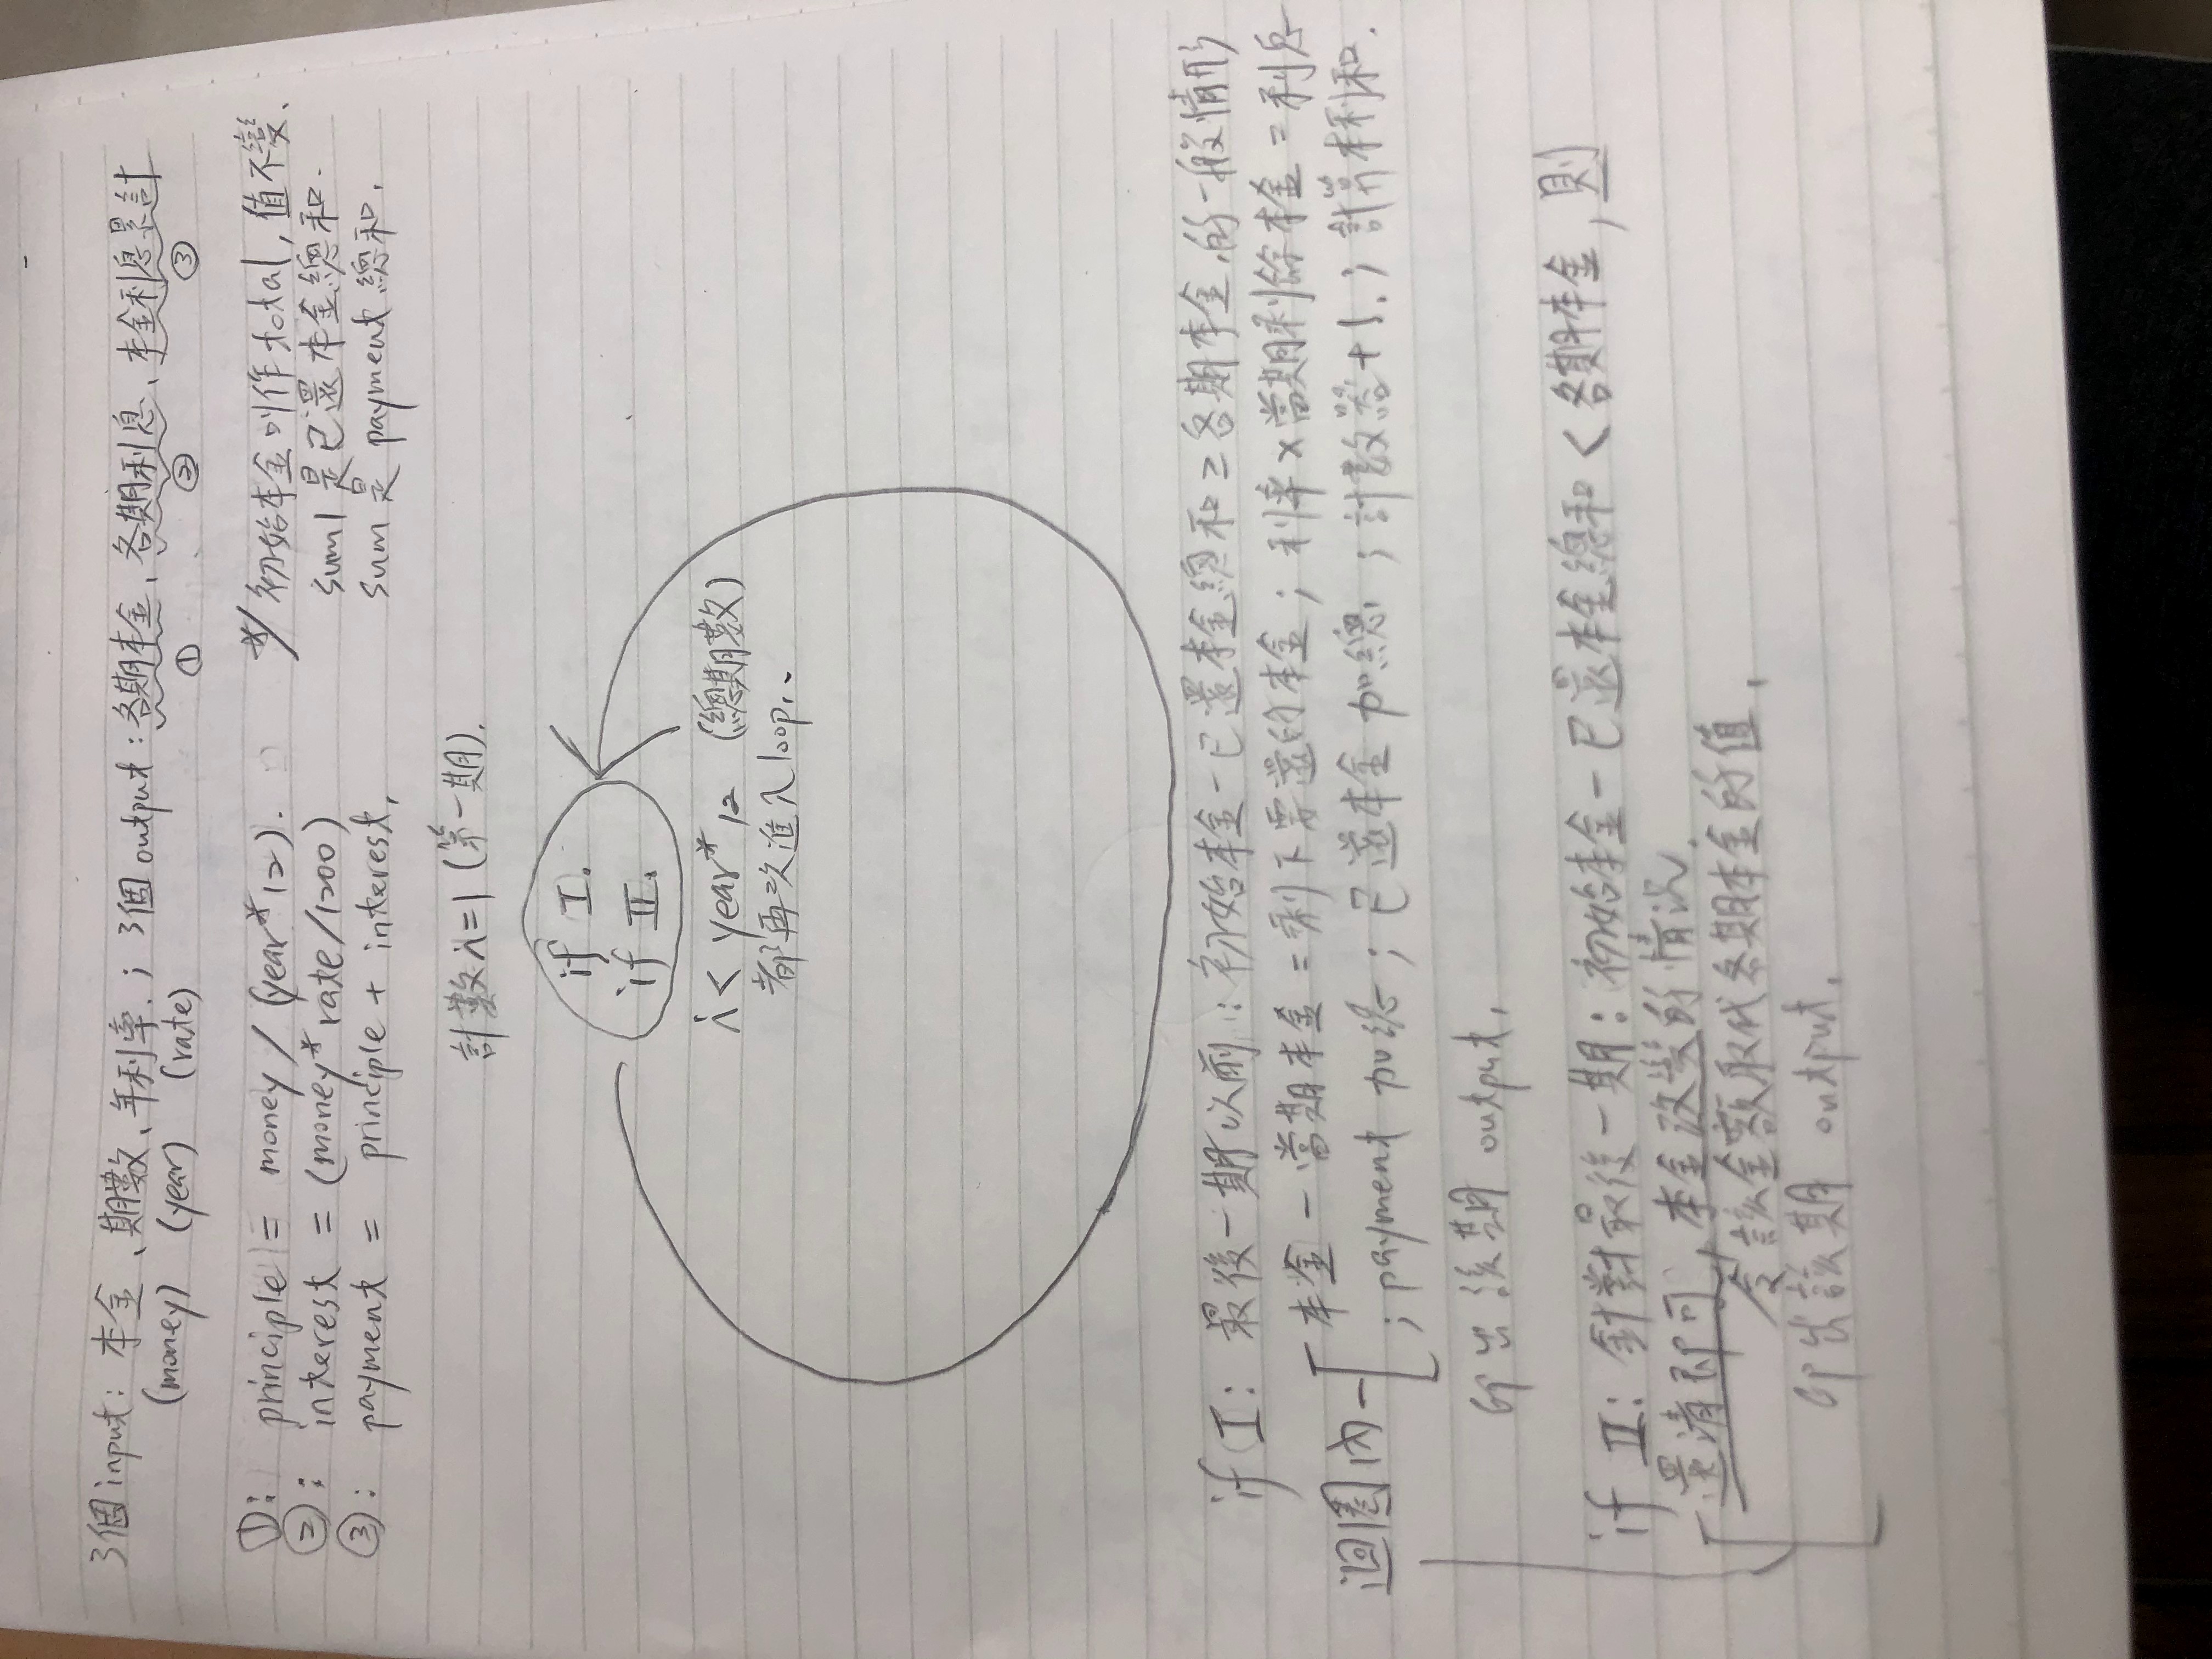 3個input: 本金、期數、年利率.; 3個output: 各期本金、各期利息、本金利息累計
(money) (year) (rate) ① ② ③
①: principle = money / (year*12). */ 初始本金叫作total, 值不變.
②: interest = (money*rate/1200) sum1是已還本金總和.
③: payment = principle + interest, sum是payment總和.
計數i=1 (第一期).
if I.
if II.
i < year*12 (總期數)
都再次進入loop.
if I: 最後一期以前: 初始本金-已還本金總和≥各期本金的一般情形
本金-當期本金=剩下要還的本金; 利率×當期剩餘本金=利息
迴圈內-
; payment 加總; 已還本金加總; 計數器+1.; 計算本利和.
印出該期 output.
if II: 針對最後一期: 初始本金-已還本金總和<各期本金, 則
還清即可, 本金改變的情況.
令該金額取代各期本金的值,
印出該期 output.